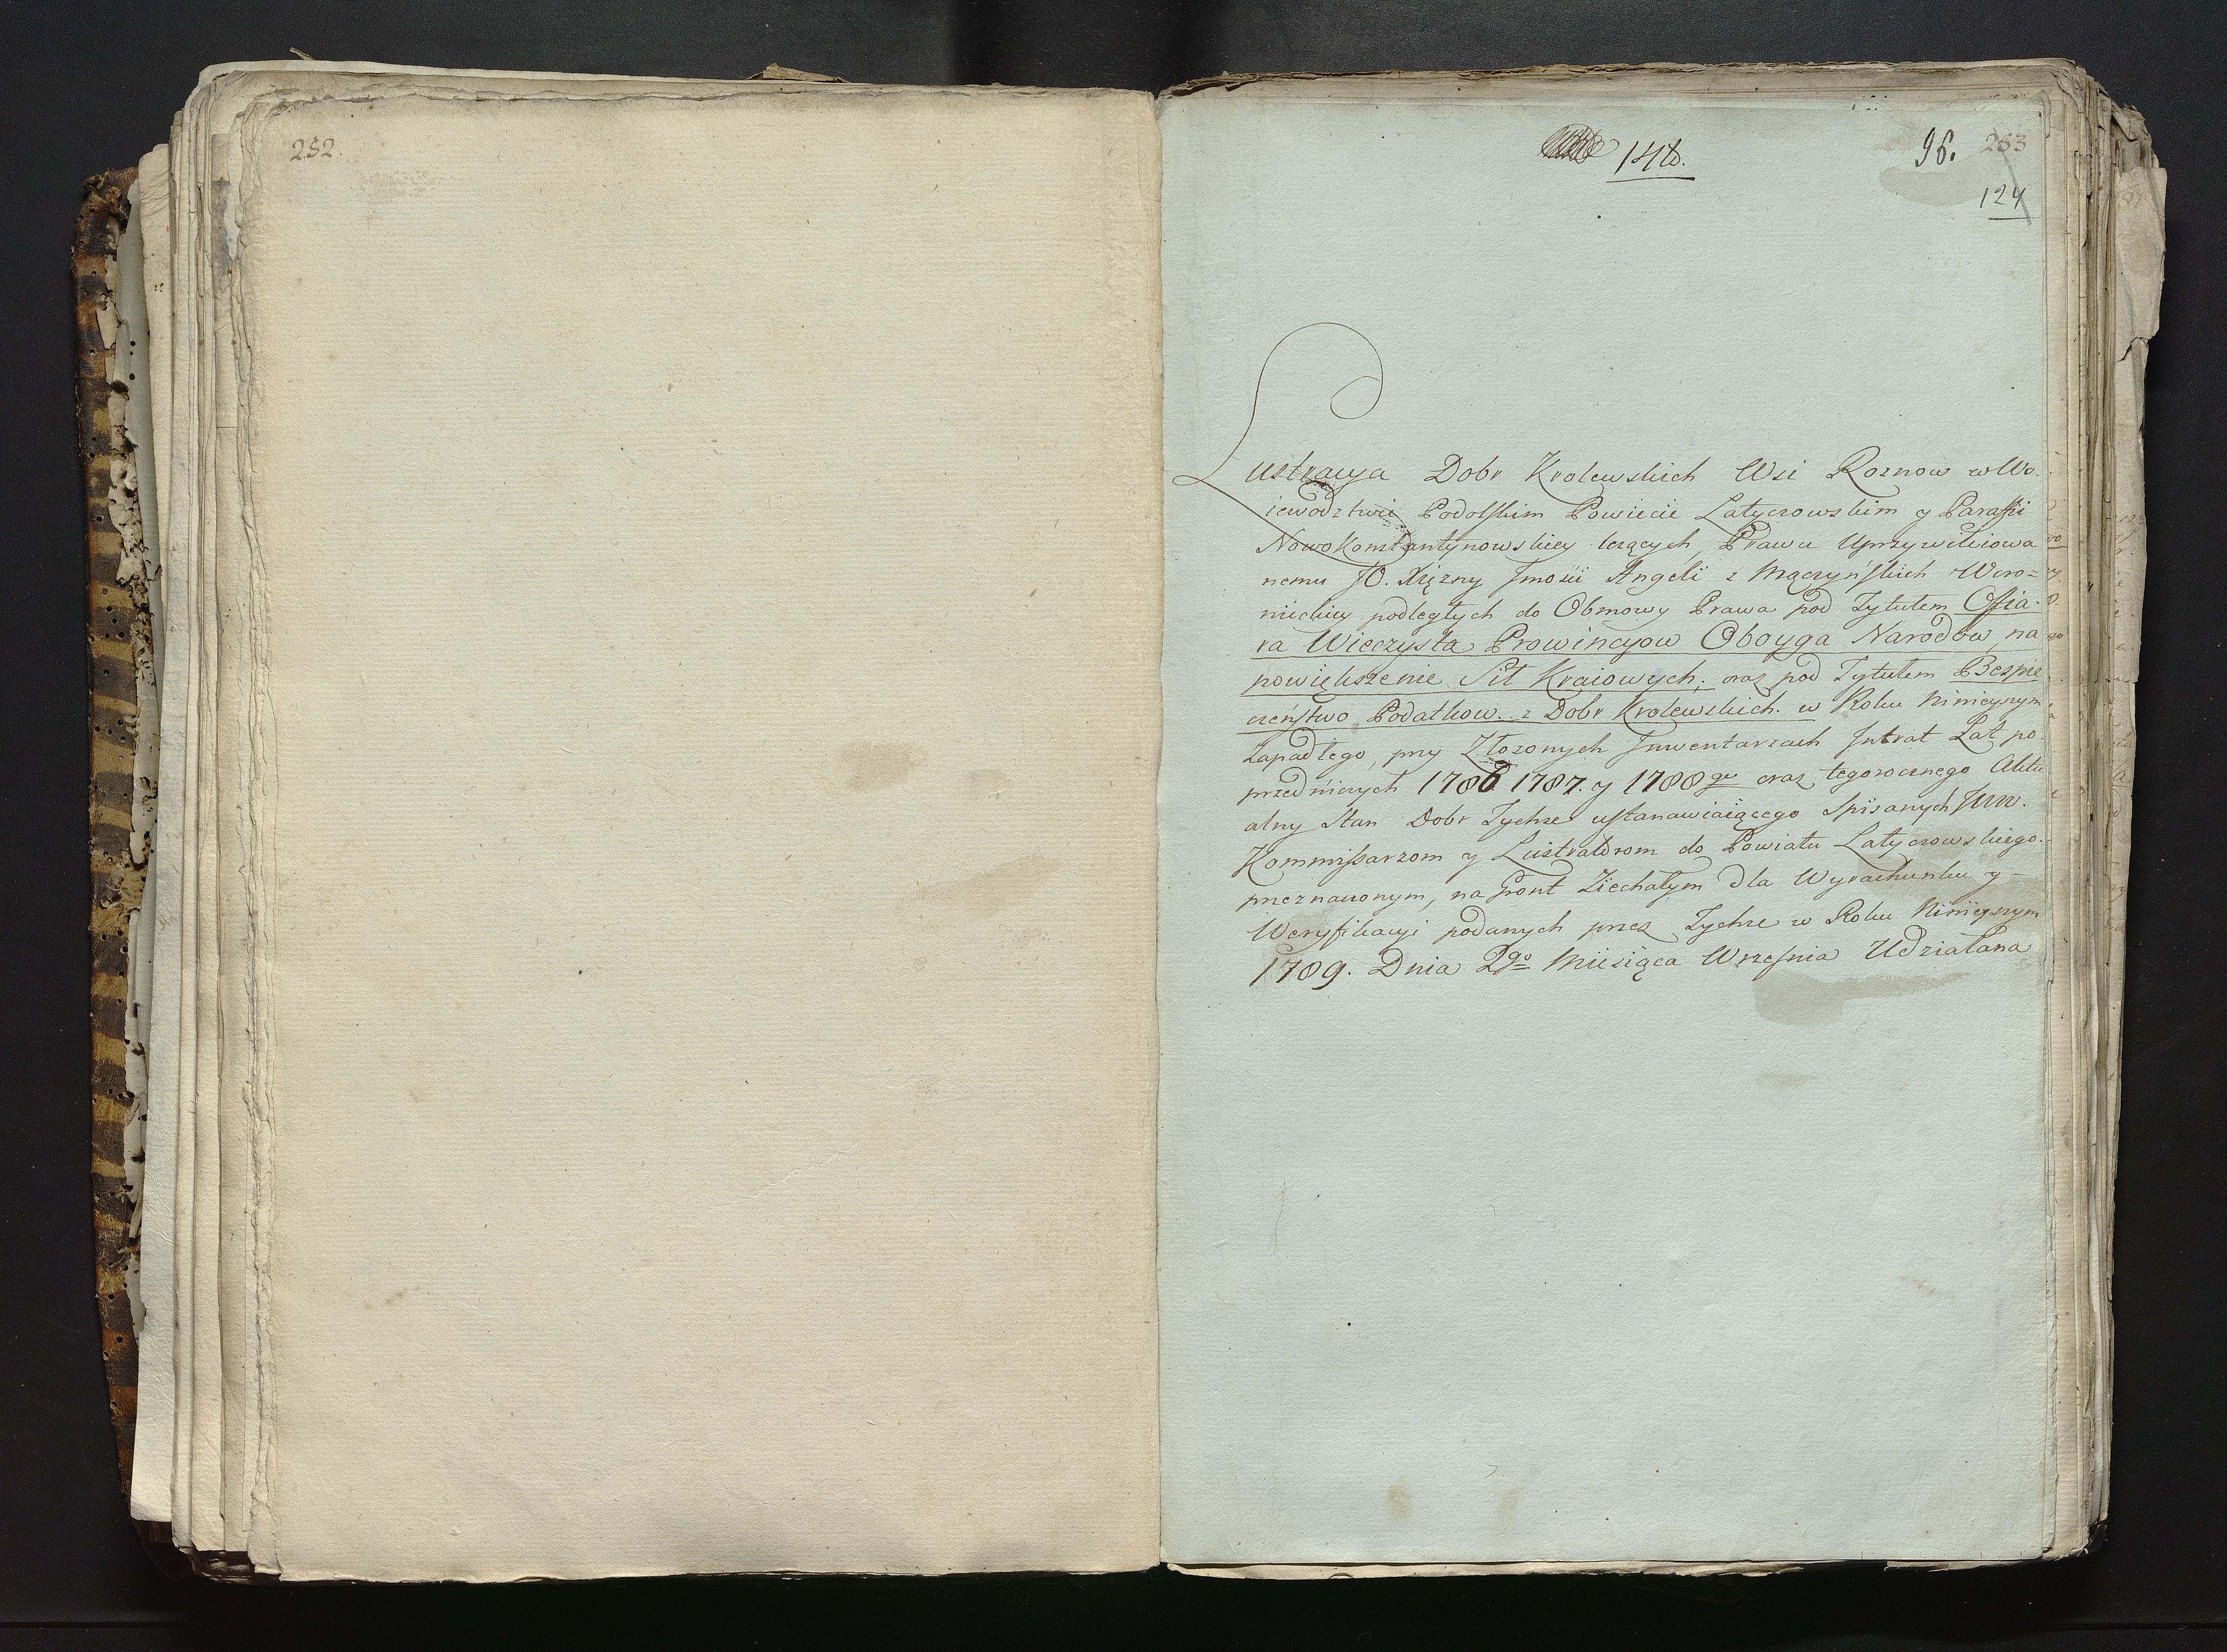 252
148. 96. 253
124
Lustracya Dobr Krolewskich Wsi Roznow w Wo
iewodztwie Podolskim Powiecie Latyczowskim y Parafii
NowoKonstantynowskiey lezących, Prawu Uprzywileiowa
nemu JO. Xięzny Jmości Angeli z Mączyńskich Woro=
nieckiey podległych do Obmowy Prawa pod Tytułem Ofia-
ra Wieczysta Prowincyow Oboyga Narodow, na
powiększenie Sił Kraiowych; oraz pod Tytułem Bespie
czeństwo Podatkow z Dobr Krolewskich. w Roku Ninieyszym
Zapadłego, przy Złozonych Inwentarzach Intrat Lat po
przedniczych 1786 1787. y 1788 oraz tegorocznego Aktu
alny Stan Dobr Tychze ustanawiaiącego Spisanych JWW.
Kommissarzom y Lustratorom do Powiatu Latyczowskiego
przeznaczonym, na Gront Ziechałym dla Wyrachunku y
Weryfikacyi podanych przez Tychze w Roku Ninieyszym
1789. Dnia 2go Miesiąca Wrzesnia Udziałana